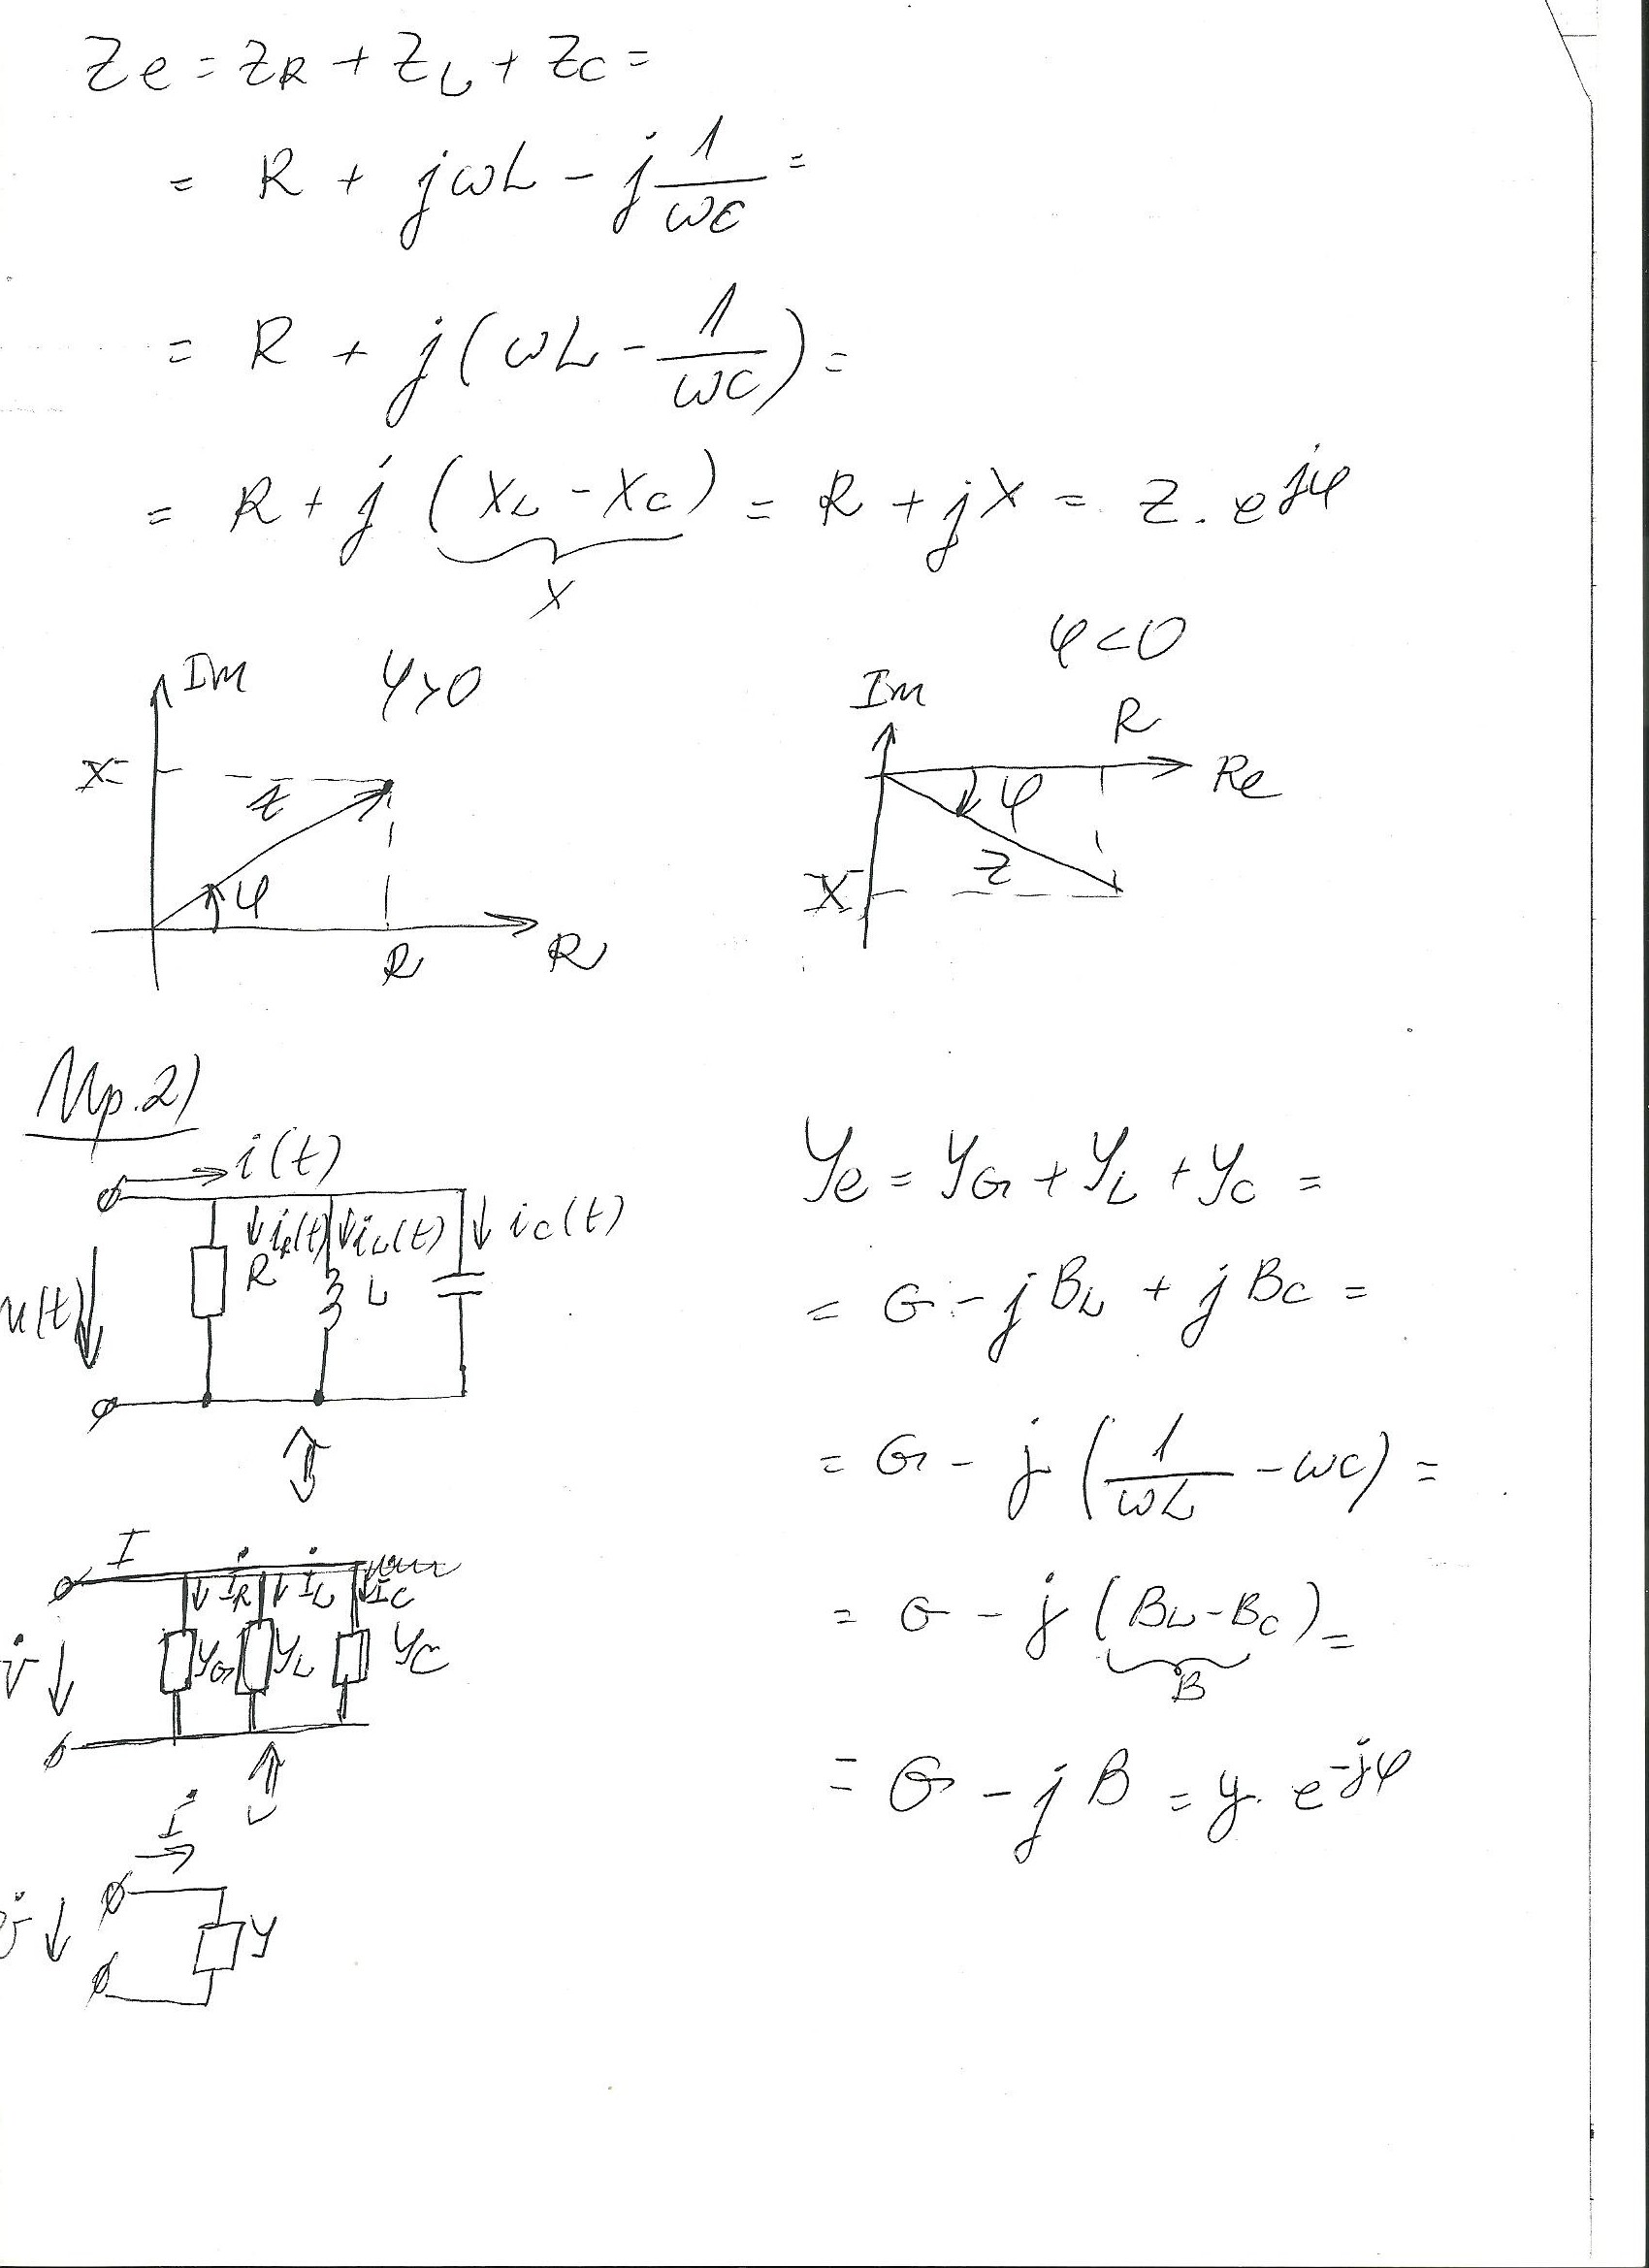 Ze = ZR + ZL + ZC =
= R + jωL - j 1/ωC =
= R + j(ωL - 1/ωC) =
= R + j (XL - XC) = R + jX = Z. e^jφ
X
Im φ>0
X
Z
φ
R R
φ<0
Im R
Re
φ
Z
X
Пр.2)
i(t)
iR(t) iL(t) iC(t)
R L
u(t)
I
İR İL IC
YG YL YC
U̇
İ
U̇
Y
Ye = YG + YL + YC =
= G - jBL + jBC =
= G - j (1/ωL - ωC) =
= G - j (BL - BC) =
B
= G - jB = y. e^-jφ